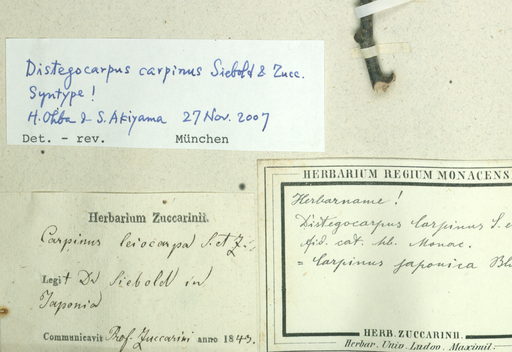 Distegocarpus carpinus Siebold & Zucc.
Syntype !
H. Ohba & S. Akiyama 27 Nov. 2007
Det. - rev. München
Herbarium Zuccarinii.
Carpinus leiocarpa S. et Z.
Legit Dr Siebold in
Japonia
Communicavit Prof. Zuccarini anno 1843.
HERBARIUM REGIUM MONACENS
Herbarname !
Distegocarpus Carpinus S. e
fid. cat. hb. Monac.
= Carpinus japonica Bl
HERB. ZUCCARINII.
Herbar. Univ. Ludov. Maximil.